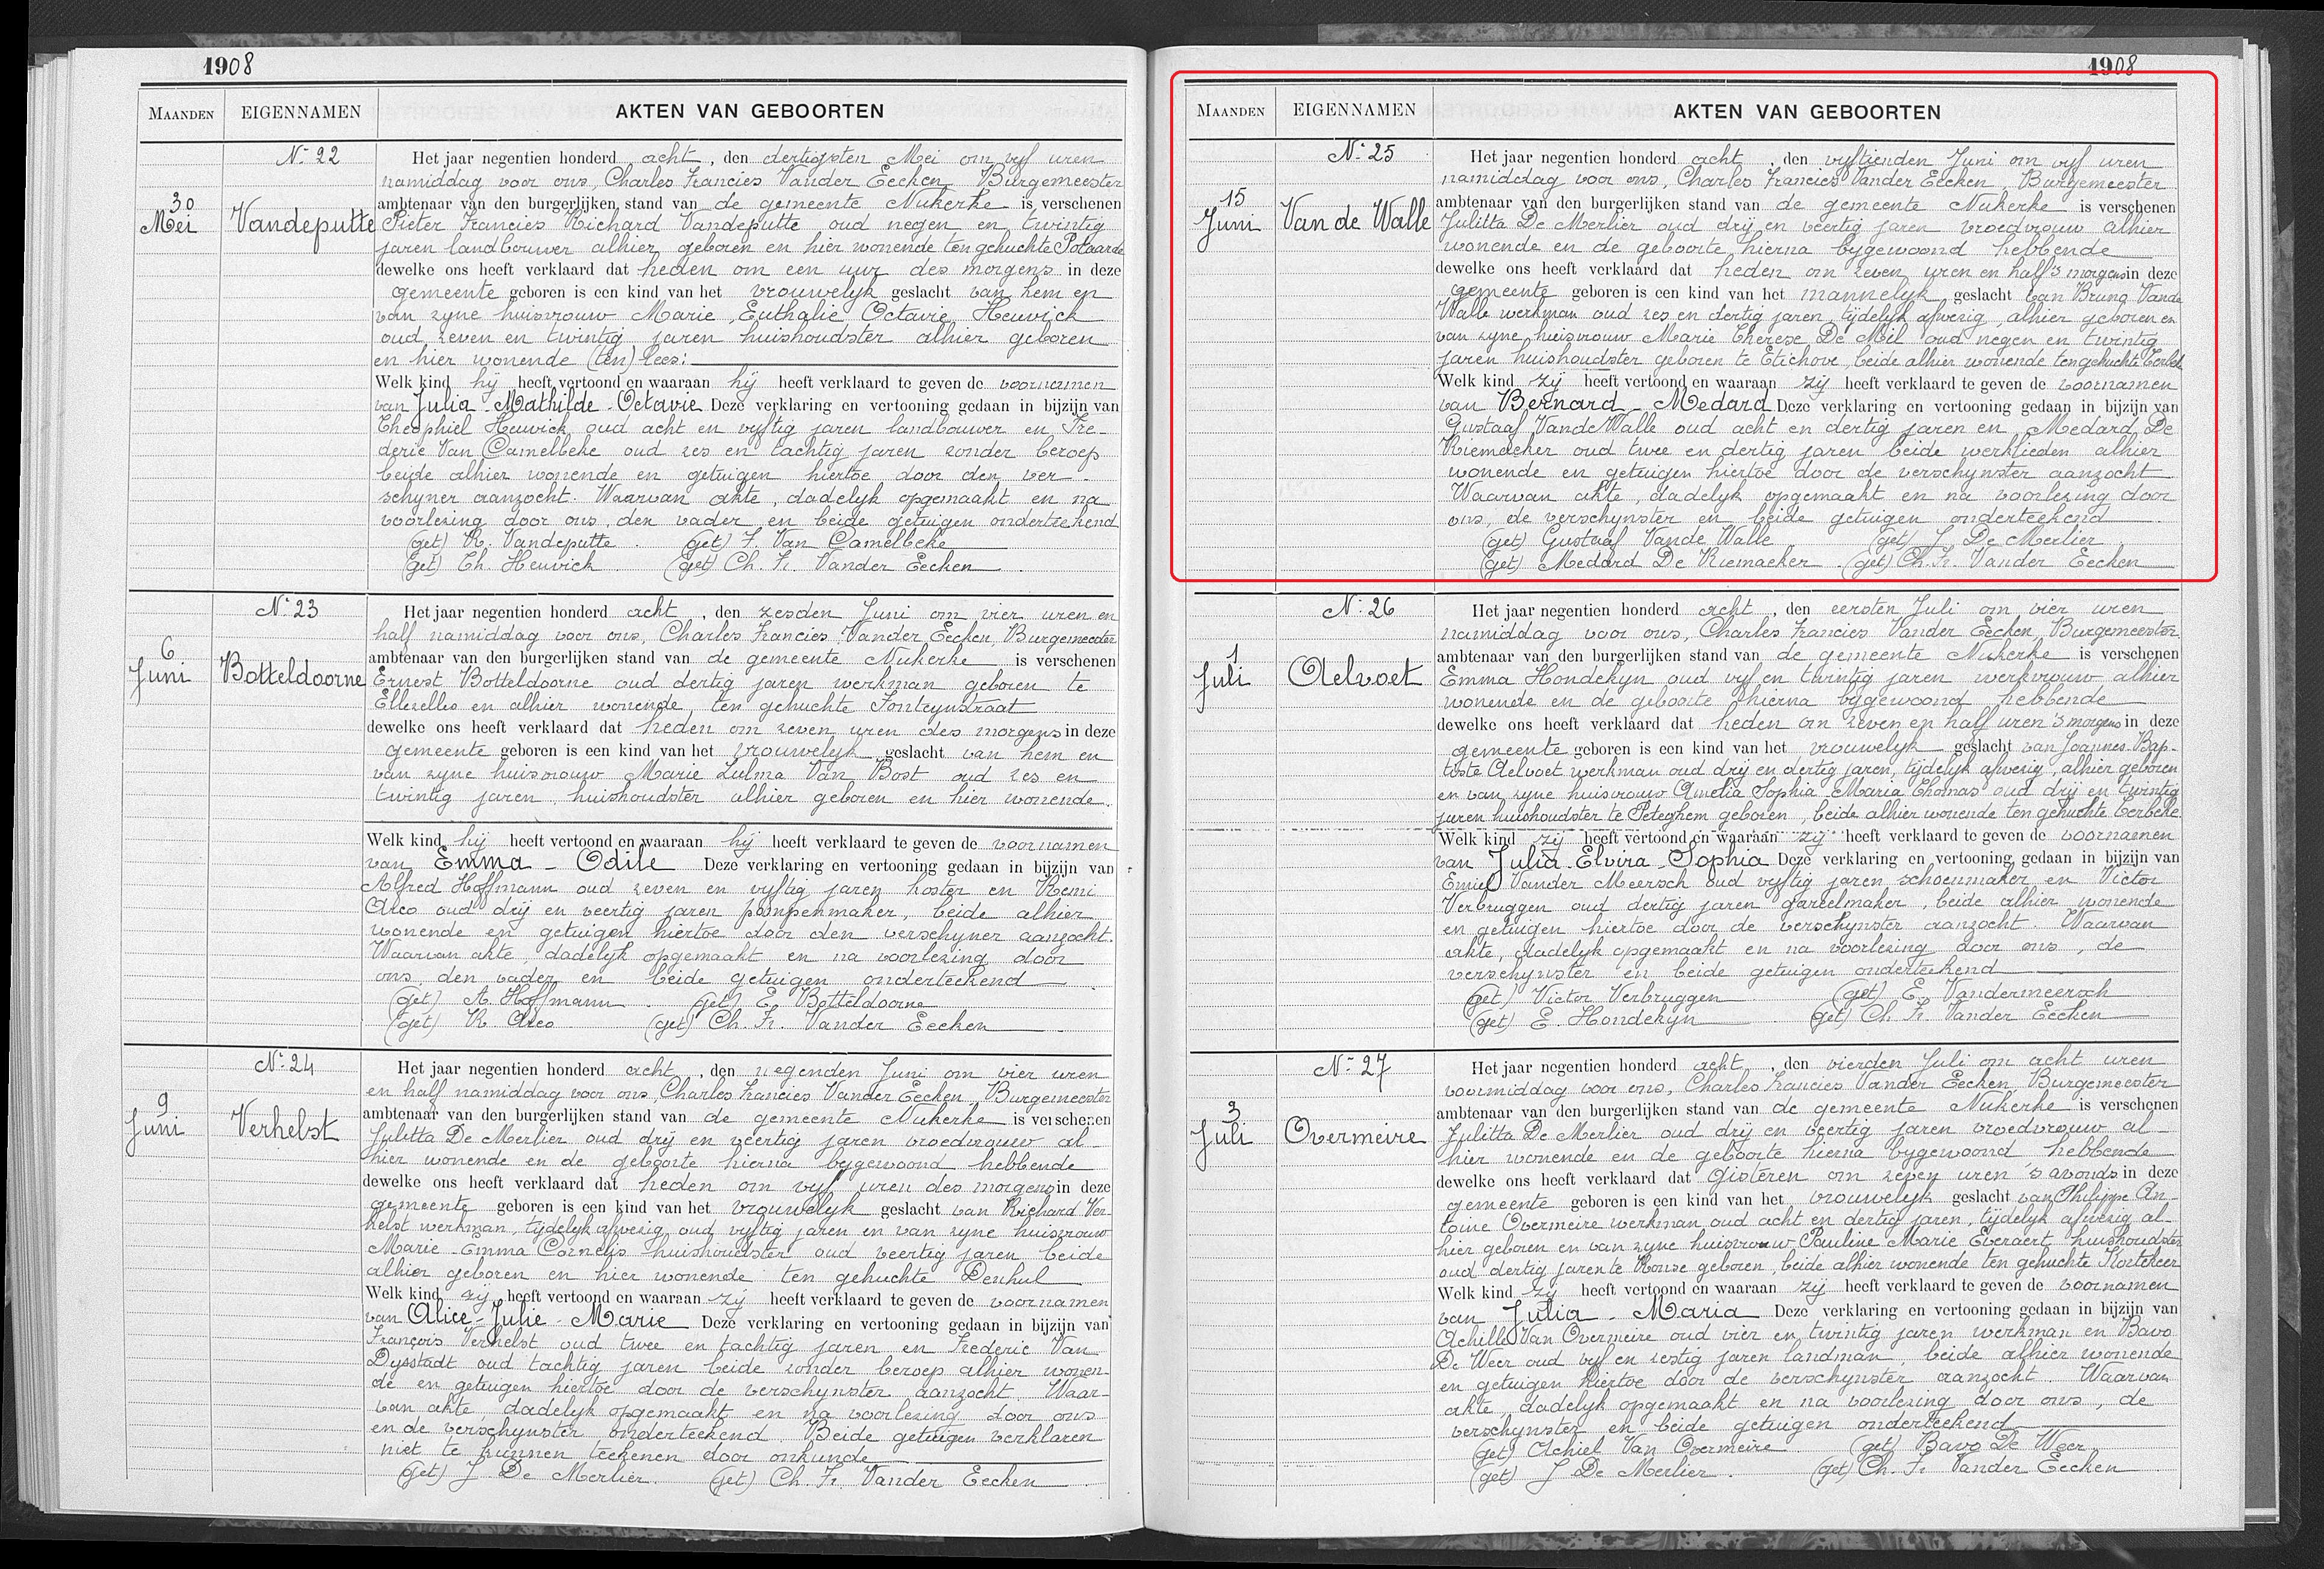 1908
MAANDEN EIGENNAMEN AKTEN VAN GEBOORTEN
N: 22
30
Mei
Vandeputte
Het jaar negentien honderd acht, den dertigsten Mei om vyf uren
namiddag voor ons, Charles Francies Vander Eecken, Burgemeester
ambtenaar van den burgerlijken stand van de gemeente Nukerke is verschenen
Pieter Francies Richard Vandeputte oud negen en twintig
jaren landbouwer alhier geboren en hier wonende ten gehuchte Potaarde
dewelke ons heeft verklaard dat heden om een uur des morgens in deze
gemeente geboren is een kind van het vrouwelyk geslacht van hem en
van zyne huisvrouw Marie Euthalie Octavie Heuvick
oud zeven en twintig jaren huishoudster alhier geboren
en hier wonende (ten) lees:
Welk kind hij heeft vertoond en waaraan hij heeft verklaard te geven de voornamen
van Julia - Mathilde - Octavie Deze verklaring en vertooning gedaan in bijzijn van
Theophiel Heuvick oud acht en vyftig jaren landbouwer en Fre-
deric Van Camelbeke oud zes en tachtig jaren zonder beroep
beide alhier wonende en getuigen hiertoe door den ver-
schyner aanzocht. Waarvan akte, dadelyk opgemaakt en na
voorlezing door ons, den vader en beide getuigen onderteekend
(get) R. Vandeputte . (get) F. Van Camelbeke
(get) Th. Heuvick . (get) Ch. Fr. Vander Eecken .
N: 23
6
Juni
Botteldoorne
Het jaar negentien honderd acht, den zesden Juni om vier uren en
half namiddag voor ons, Charles Francies Vander Eecken, Burgemeester
ambtenaar van den burgerlijken stand van de gemeente Nukerke is verschenen
Ernest Botteldoorne oud dertig jaren werkman geboren te
Ellezelles en alhier wonende ten gehuchte Fonteynstraat
dewelke ons heeft verklaard dat heden om zeven uren des morgens in deze
gemeente geboren is een kind van het vrouwelyk geslacht van hem en
van zyne huisvrouw Marie Zulma Van Bost oud zes en
twintig jaren huishoudster alhier geboren en hier wonende.
Welk kind hij heeft vertoond en waaraan hij heeft verklaard te geven de voornamen
van Emma - Odile Deze verklaring en vertooning gedaan in bijzijn van
Alfred Hoffmann oud zeven en vyftig jaren koster en Remi
Arco oud drij en veertig jaren pompenmaker, beide alhier
wonende en getuigen hiertoe door den verschyner aanzocht.
Waarvan akte, dadelyk opgemaakt en na voorlezing door
ons, den vader en beide getuigen onderteekend
(get) A. Hoffmann . (get) E. Botteldoorne
(get) R. Arco (get) Ch. Fr. Vander Eecken
N: 24
9
Juni
Verhelst
Het jaar negentien honderd acht, den negenden Juni om vier uren
en half namiddag voor ons, Charles Francies Vander Eecken, Burgemeester
ambtenaar van den burgerlijken stand van de gemeente Nukerke is verschenen
Julitta De Merlier oud drij en veertig jaren vroedvrouw al-
hier wonende en de geboorte hierna bygewoond hebbende
dewelke ons heeft verklaard dat heden om vyf uren des morgens in deze
gemeente geboren is een kind van het vrouwelyk geslacht van Richard Ver-
helst werkman, tijdelyk afwezig, oud vyftig jaren en van zyne huisvrouw
Marie-Emma Cornelis huishoudster oud veertig jaren beide
alhier geboren en hier wonende ten gehuchte Denhul
Welk kind zij heeft vertoond en waaraan zij heeft verklaard te geven de voornamen
van Alice - Julie - Marie Deze verklaring en vertooning gedaan in bijzijn van
François Verhelst oud twee en tachtig jaren en Frederic Van
Dysstadt oud tachtig jaren beide zonder beroep alhier wonen-
de en getuigen hiertoe door de verschynster aanzocht. Waar-
van akte, dadelyk opgemaakt en na voorlezing door ons
en de verschynster onderteekend. Beide getuigen verklaren
niet te kunnen teekenen door onkunde
(get) J. De Merlier. (get) Ch. Fr. Vander Eecken
1908
MAANDEN EIGENNAMEN AKTEN VAN GEBOORTEN
N: 25
15
Juni
Van de Walle
Het jaar negentien honderd acht, den vyftienden Juni om vyf uren
namiddag voor ons, Charles Francies Vander Eecken, Burgemeester
ambtenaar van den burgerlijken stand van de gemeente Nukerke is verschenen
Julitta De Merlier oud drij en veertig jaren vroedvrouw alhier
wonende en de geboorte hierna bygewoond hebbende
dewelke ons heeft verklaard dat heden om zeven uren en half 's morgens in deze
gemeente geboren is een kind van het mannelyk geslacht van Bruno Vande
Walle werkman oud zes en dertig jaren, tijdelyk afwezig, alhier geboren en
van zyne huisvrouw Marie Therese De Mil oud negen en twintig
jaren huishoudster geboren te Etichove, beide alhier wonende ten gehuchte Terbeke
Welk kind zij heeft vertoond en waaraan zij heeft verklaard te geven de voornamen
van Bernard - Medard Deze verklaring en vertooning gedaan in bijzijn van
Gustaaf VandeWalle oud acht en dertig jaren en Medard De
Riemaeker oud twee en dertig jaren beide werklieden alhier
wonende en getuigen hiertoe door de verschynster aanzocht
Waarvan akte, dadelyk opgemaakt en na voorlezing door
ons, de verschynster en beide getuigen onderteekend
(get) Gustaaf Vande Walle (get) J. De Merlier
(get) Medard De Riemaeker . (get) Ch. Fr. Vander Eecken
N: 26
1
Juli
Aelvoet
Het jaar negentien honderd acht, den eersten Juli om vier uren
namiddag voor ons, Charles Francies Vander Eecken, Burgemeester
ambtenaar van den burgerlijken stand van de gemeente Nukerke is verschenen
Emma Hondekyn oud vyf en twintig jaren werkvrouw alhier
wonende en de geboorte hierna bygewoond hebbende
dewelke ons heeft verklaard dat heden om zeven en half uren 's morgens in deze
gemeente geboren is een kind van het vrouwelyk geslacht van Joannes-Bap-
tiste Aelvoet werkman oud drij en dertig jaren, tijdelyk afwezig, alhier geboren
en van zyne huisvrouw Amelia Sophia Maria Thomas oud drij en twintig
jaren huishoudster te Peteghem geboren, beide alhier wonende ten gehuchte Terbeke
Welk kind zij heeft vertoond en waaraan zij heeft verklaard te geven de voornamen
van Julia - Elvira - Sophia Deze verklaring en vertooning gedaan in bijzijn van
Emiel Vander Meersch oud vyftig jaren schoenmaker en Victor
Verbruggen oud dertig jaren gareelmaker, beide alhier wonende
en getuigen hiertoe door de verschynster aanzocht. Waarvan
akte, dadelyk opgemaakt en na voorlezing door ons, de
verschynster en beide getuigen onderteekend
(get) Victor Verbruggen (get) E. Vandermeersch
(get) E. Hondekyn (get) Ch. Fr. Vander Eecken
N: 27
3
Juli
Overmeire
Het jaar negentien honderd acht, den vierden Juli om acht uren
voormiddag voor ons, Charles Francies Vander Eecken, Burgemeester
ambtenaar van den burgerlijken stand van de gemeente Nukerke is verschenen
Julitta De Merlier oud drij en veertig jaren vroedvrouw al-
hier wonende en de geboorte hierna bygewoond hebbende
dewelke ons heeft verklaard dat gisteren om zeven uren 's avonds in deze
gemeente geboren is een kind van het vrouwelyk geslacht van Philippe An-
toine Overmeire werkman oud acht en dertig jaren, tijdelyk afwezig al-
hier geboren en van zyne huisvrouw Pauline Marie Everaert huishoudster
oud dertig jaren te Ronse geboren, beide alhier wonende ten gehuchte Kortekeer
Welk kind zij heeft vertoond en waaraan zij heeft verklaard te geven de voornamen
van Julia - Maria Deze verklaring en vertooning gedaan in bijzijn van
Achille Van Overmeire oud vier en twintig jaren werkman en Bavo
De Weer oud vyf en zestig jaren landman, beide alhier wonende
en getuigen hiertoe door de verschynster aanzocht. Waarvan
akte, dadelyk opgemaakt en na voorlezing door ons, de
verschynster en beide getuigen onderteekend
(get) Achiel Van Overmeire (get) Bavo De Weer
(get) J De Merlier . (get) Ch. Fr. Vander Eecken